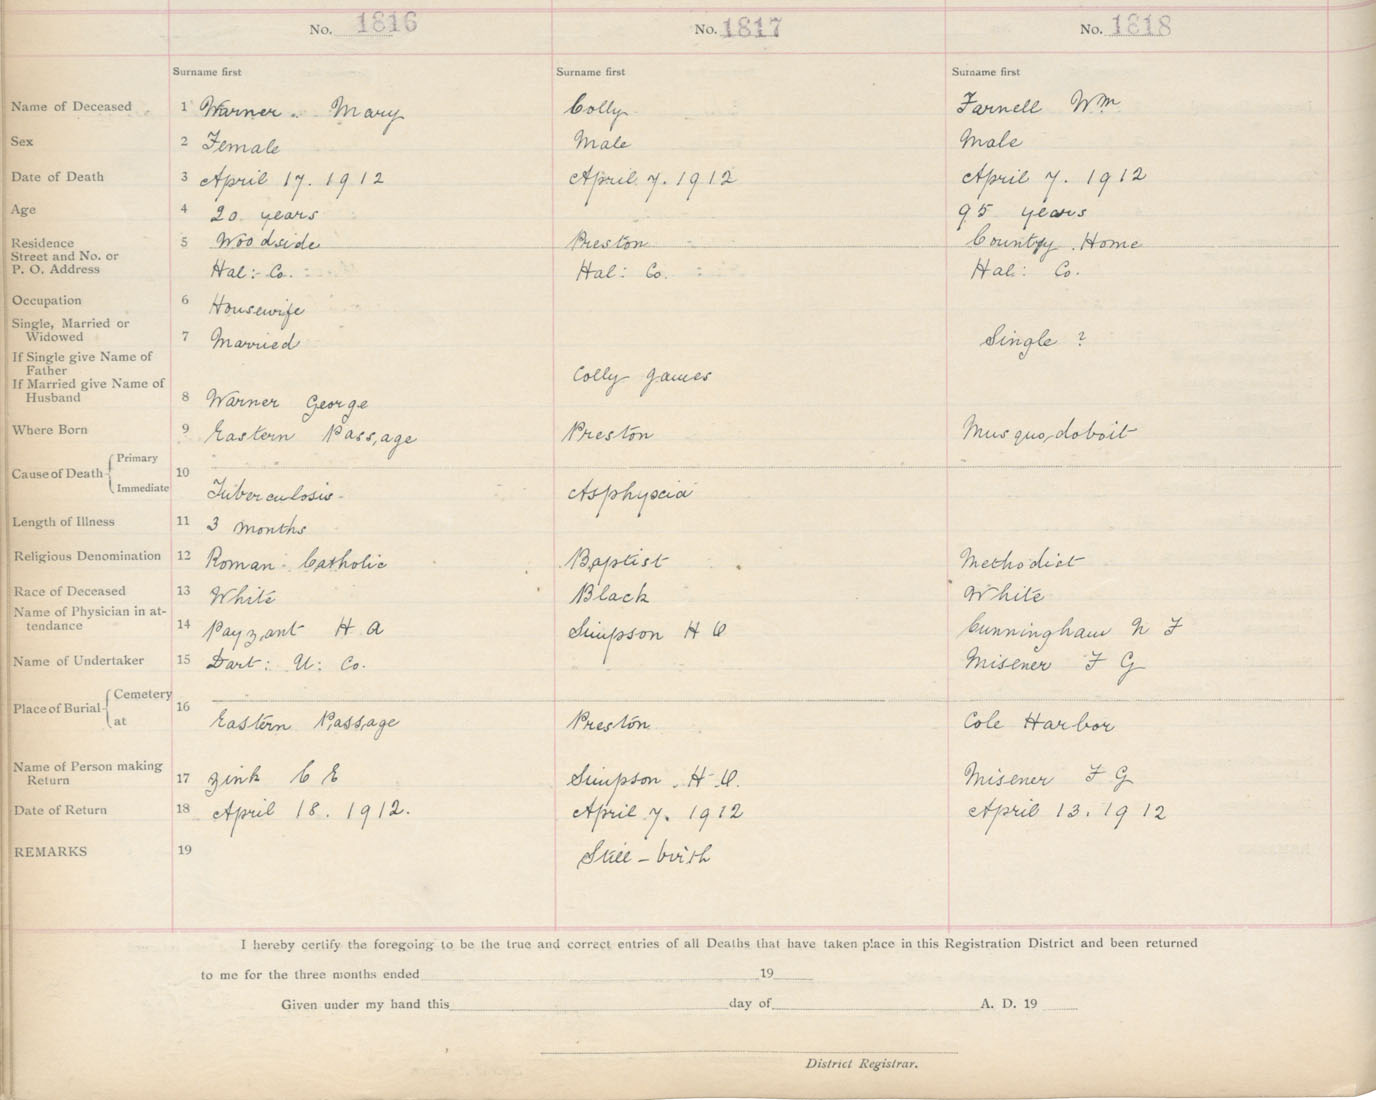 No. 1816 No. 1817 No. 1818
Surname first Surname first Surname first
Name of Deceased 1 Warner. Mary Colly Farnell Wm
Sex 2 Female Male Male
Date of Death 3 April 17. 1912 April 7. 1912 April 7. 1912
Age 4 20 years 95 years
Residence 5 Woodside Preston County Home
Street and No. or
P. O. Address Hal: Co. Hal: Co. Hal: Co.
Occupation 6 Housewife
Single, Married or
Widowed 7 Married Single ?
If Single give Name of
Father Colly James
If Married give Name of
Husband 8 Warner George
Where Born 9 Eastern Passage Preston Musquodoboit
Cause of Death Primary 10
Immediate Tuberculosis Asphyxia
Length of Illness 11 3 months
Religious Denomination 12 Roman Catholic Baptist Methodist
Race of Deceased 13 White Black White
Name of Physician in at-
tendance 14 Payzant H A Simpson H Cunningham N F
Name of Undertaker 15 Dart: U: Co. Misener F G
Place of Burial Cemetery 16
at Eastern Passage Preston Cole Harbor
Name of Person making
Return 17 Zink C E Simpson. H Misener F G
Date of Return 18 April 18. 1912. April 7. 1912 April 13. 1912
REMARKS 19 Still-birth
I hereby certify the foregoing to be the true and correct entries of all Deaths that have taken place in this Registration District and been returned
to me for the three months ended 19
Given under my hand this day of A. D. 19
District Registrar.